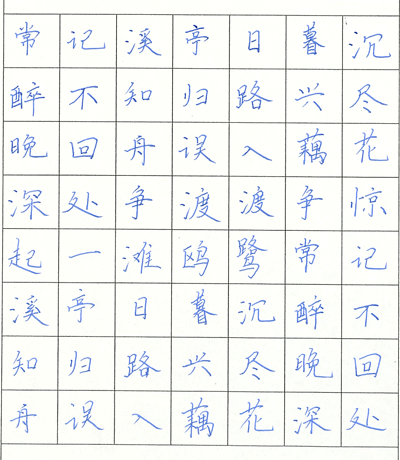 常记溪亭日暮沉
醉不知归路兴尽
晚回舟误入藕花
深处争渡渡争惊
起一滩鸥鹭常记
溪亭日暮沉醉不
知归路兴尽晚回
舟误入藕花深处